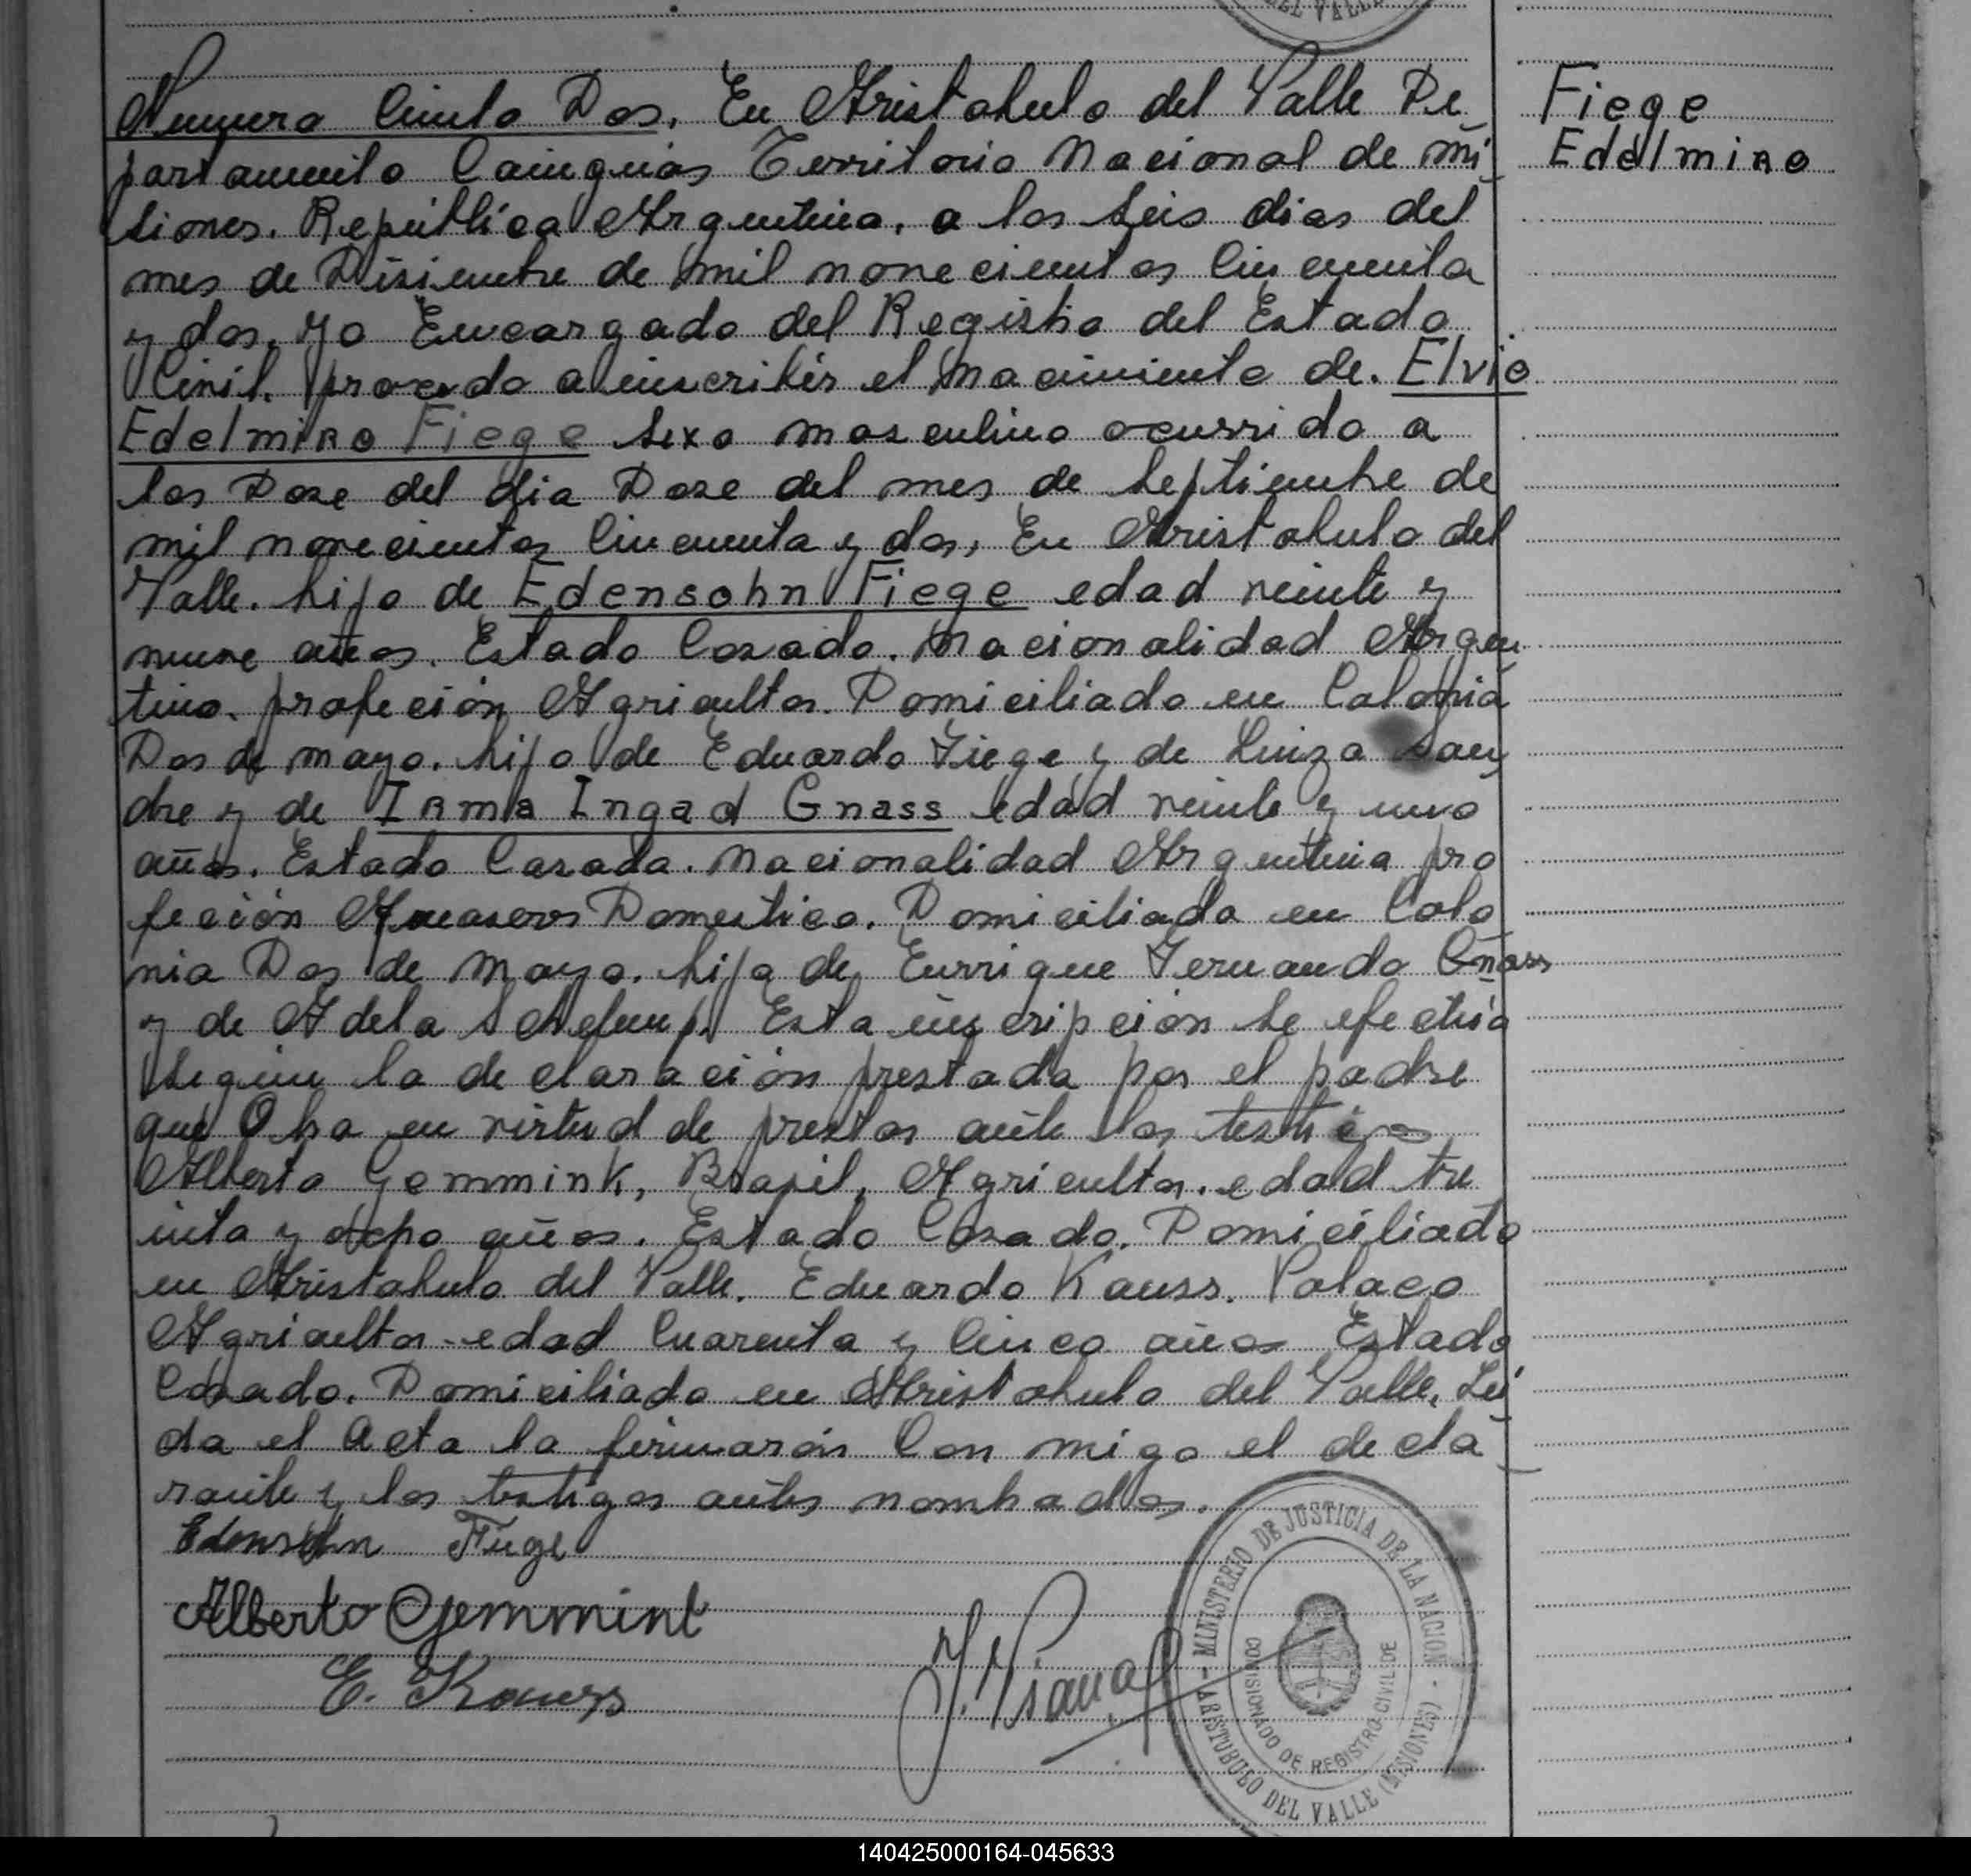 DEL VALLE
Numero Ciento Dos. En Aristobulo del Valle De
partamento Cainguás Territorio Nacional de Mi
siones. República Argentina, a los seis dias del
mes de Disiembre de mil novecientos Cincuenta
y dos. Yo Encargado del Registro del Estado
Civil. procedo a inscribir el Nacimiento de. Elvio
Edelmiro Fiege sexo masculino ocurrido a
las Doze del dia Doze del mes de Septiembre de
mil novecientos Cincuenta y dos, En Aristobulo del
Valle. hijo de Edensohn Fiege edad veinte y
nueve años. Estado Casado. Nacionalidad Argen
tino. profeción Agricultor. Domiciliado en Colonia
Dos de mayo. hijo de Eduardo Fiege y de Luiza San
dre y de Irma Ingad Gnass edad veinte y uno
años. Estado Casada. Nacionalidad Argentina pro
feción Domestico. Domiciliada en Colo
nia Dos de Mayo. hija de Enrrique Fernando Gnass
y de Adela Esta inscripción se efectúa
según la declaración prestada por el padre
que Obra en virtud de prestar ante los testigos
Alberto Gemmink, Brasil, Agricultor. edad tre
inta y ocho años. Estado Casado. Domiciliado
en Aristobulo del Valle. Eduardo Kauss. Polaco
Agricultor - edad Cuarenta y Cinco años Estado
Casado. Domiciliado en Aristobulo del Valle. Lei
da el Acta la firmarón Con migo el decla
rante y los testigos antes nombrados.
Edensohn Fiege
Alberto Gemmink
E. Kauss
MINISTERIO DE JUSTICIA DE LA NACION
COMISIONADO DE REGISTRO CIVIL DE
ARISTOBULO DEL VALLE (MISIONES)
Fiege
Edelmiro
140425000164-045633